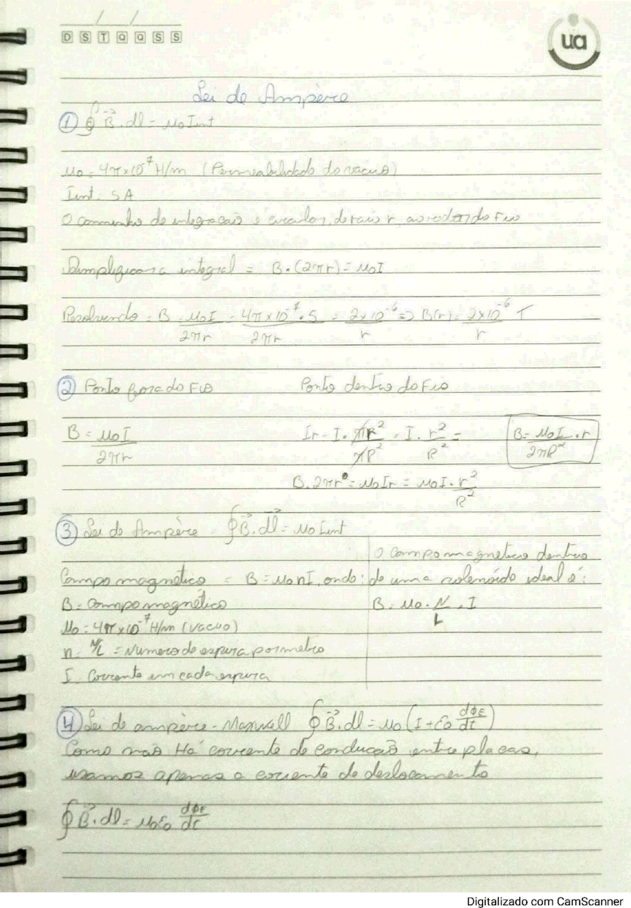 D S T Q Q S S
ua
Lei de Ampère
① ∮ B⃗ . dl = μ₀ Iint
μ₀ = 4π x 10⁻⁷ H/m (Permeabilidade do vácuo)
Iint = 5A
O caminho de integração é circular, de raio r, ao redor do fio
a integral = B . (2πr) = μ₀I
Resolvendo = B μ₀I/2πr = 4π x 10⁻⁷ . 5/2πr = 2 x 10⁻⁶/r => B(r) = 2 x 10⁻⁶/r T
② Ponto fora do Fio Ponto dentro do Fio
B = μ₀I/2πr Ir = I . πr²/πR² = I . r²/R² = B = μ₀I/2πR² . r
B . 2πr = μ₀Ir = μ₀I . r²/R²
③ Lei de Ampère = ∮ B⃗ . dl⃗ = μ₀ Iint
Campo magnético = B = μ₀nI, onde:
B = campo magnético
μ₀ = 4π x 10⁻⁷ H/m (vácuo)
n = N/L = Número de espira por metro
I = Corrente em cada espira
O campo magnético dentro
de uma solenóide ideal é:
B = μ₀ . N/L . I
④ Lei de ampère - Maxwell ∮ B⃗ . dl = μ₀ (I + ε₀ dΦE/dt)
Como não Há corrente de condução entre placas,
usamos apenas a corrente de deslocamento
∮ B⃗ . dl = μ₀ε₀ dΦE/dt
Digitalizado com CamScanner